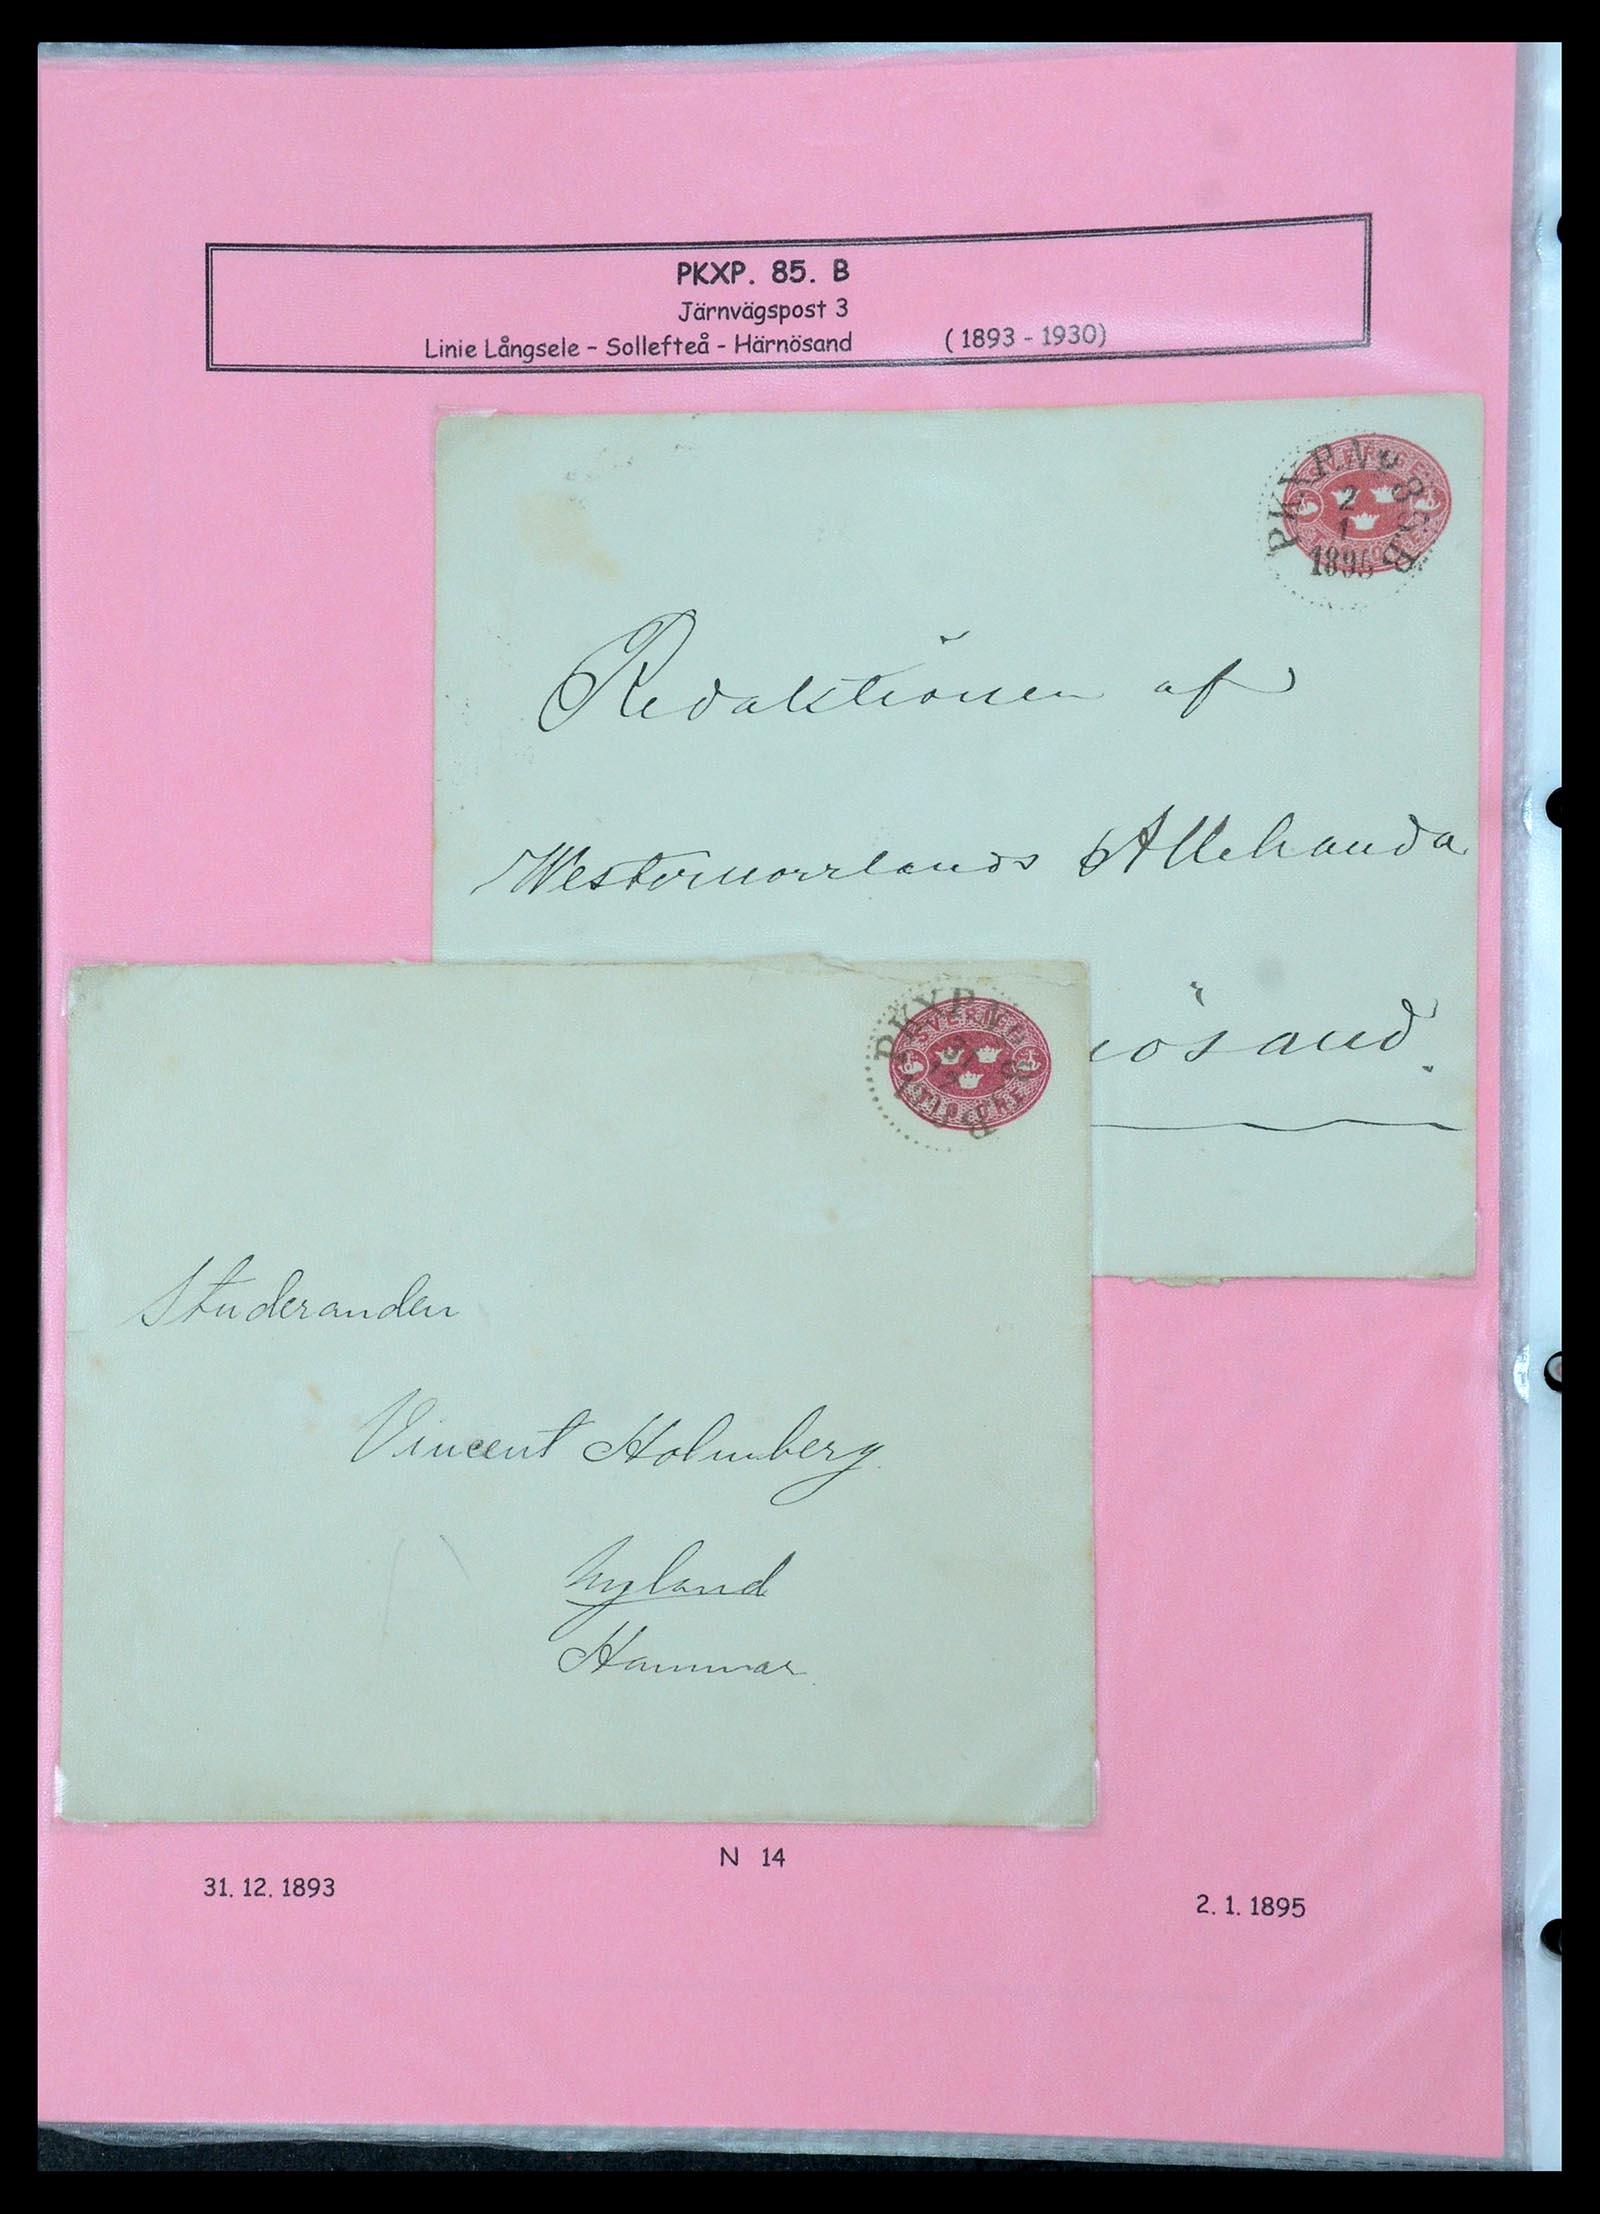 PKXP. 85. B
Järnvägspost 3
Linie Långsele - Sollefteå - Härnösand (1893 - 1930)
PKXP. No 85 B
2
1
1895
SVERIGE
Redaktionen af
Westernorrlands Allehanda
nösand.
PKXP. No 85 B
31
12
SVERIGE
TIO ÖRE
Studeranden
Vincent Holmberg.
Nyland
Hammar.
N 14
31. 12. 1893
2. 1. 1895